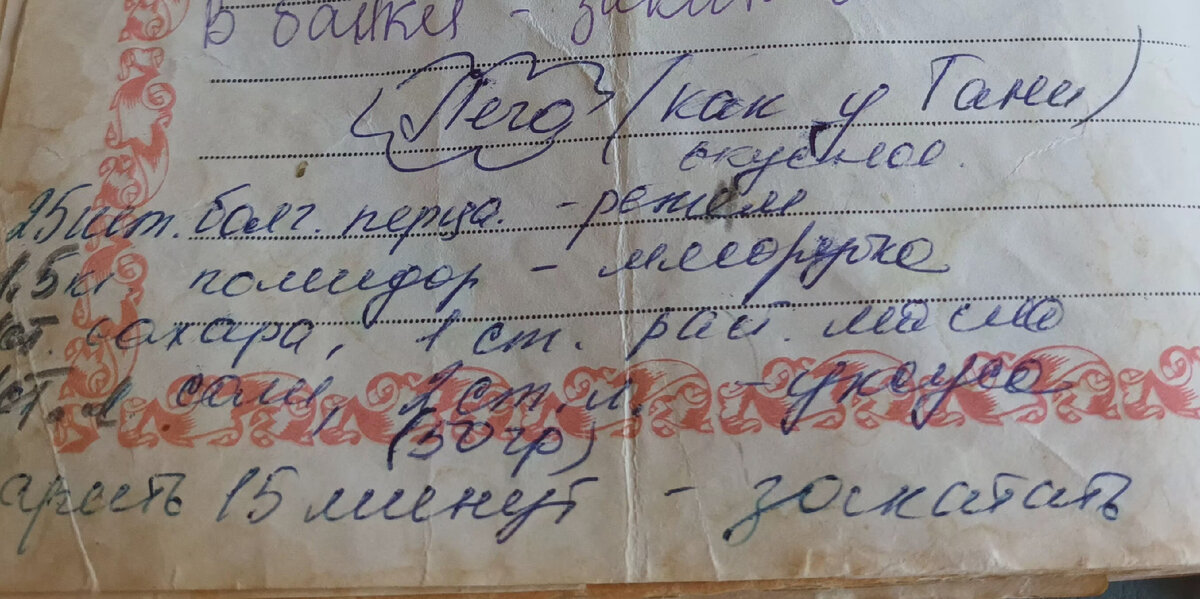 В банки - закат
Лечо (как у Тани)
вкусное.
25 шт. болг. перца. - режем
1,5 кг. помидор - мясорубка
ст. сахара, 1 ст. рас. масло
ст. л. соли, 2 ст. л. - уксуса
(50 гр)
арить 15 минут - закатать